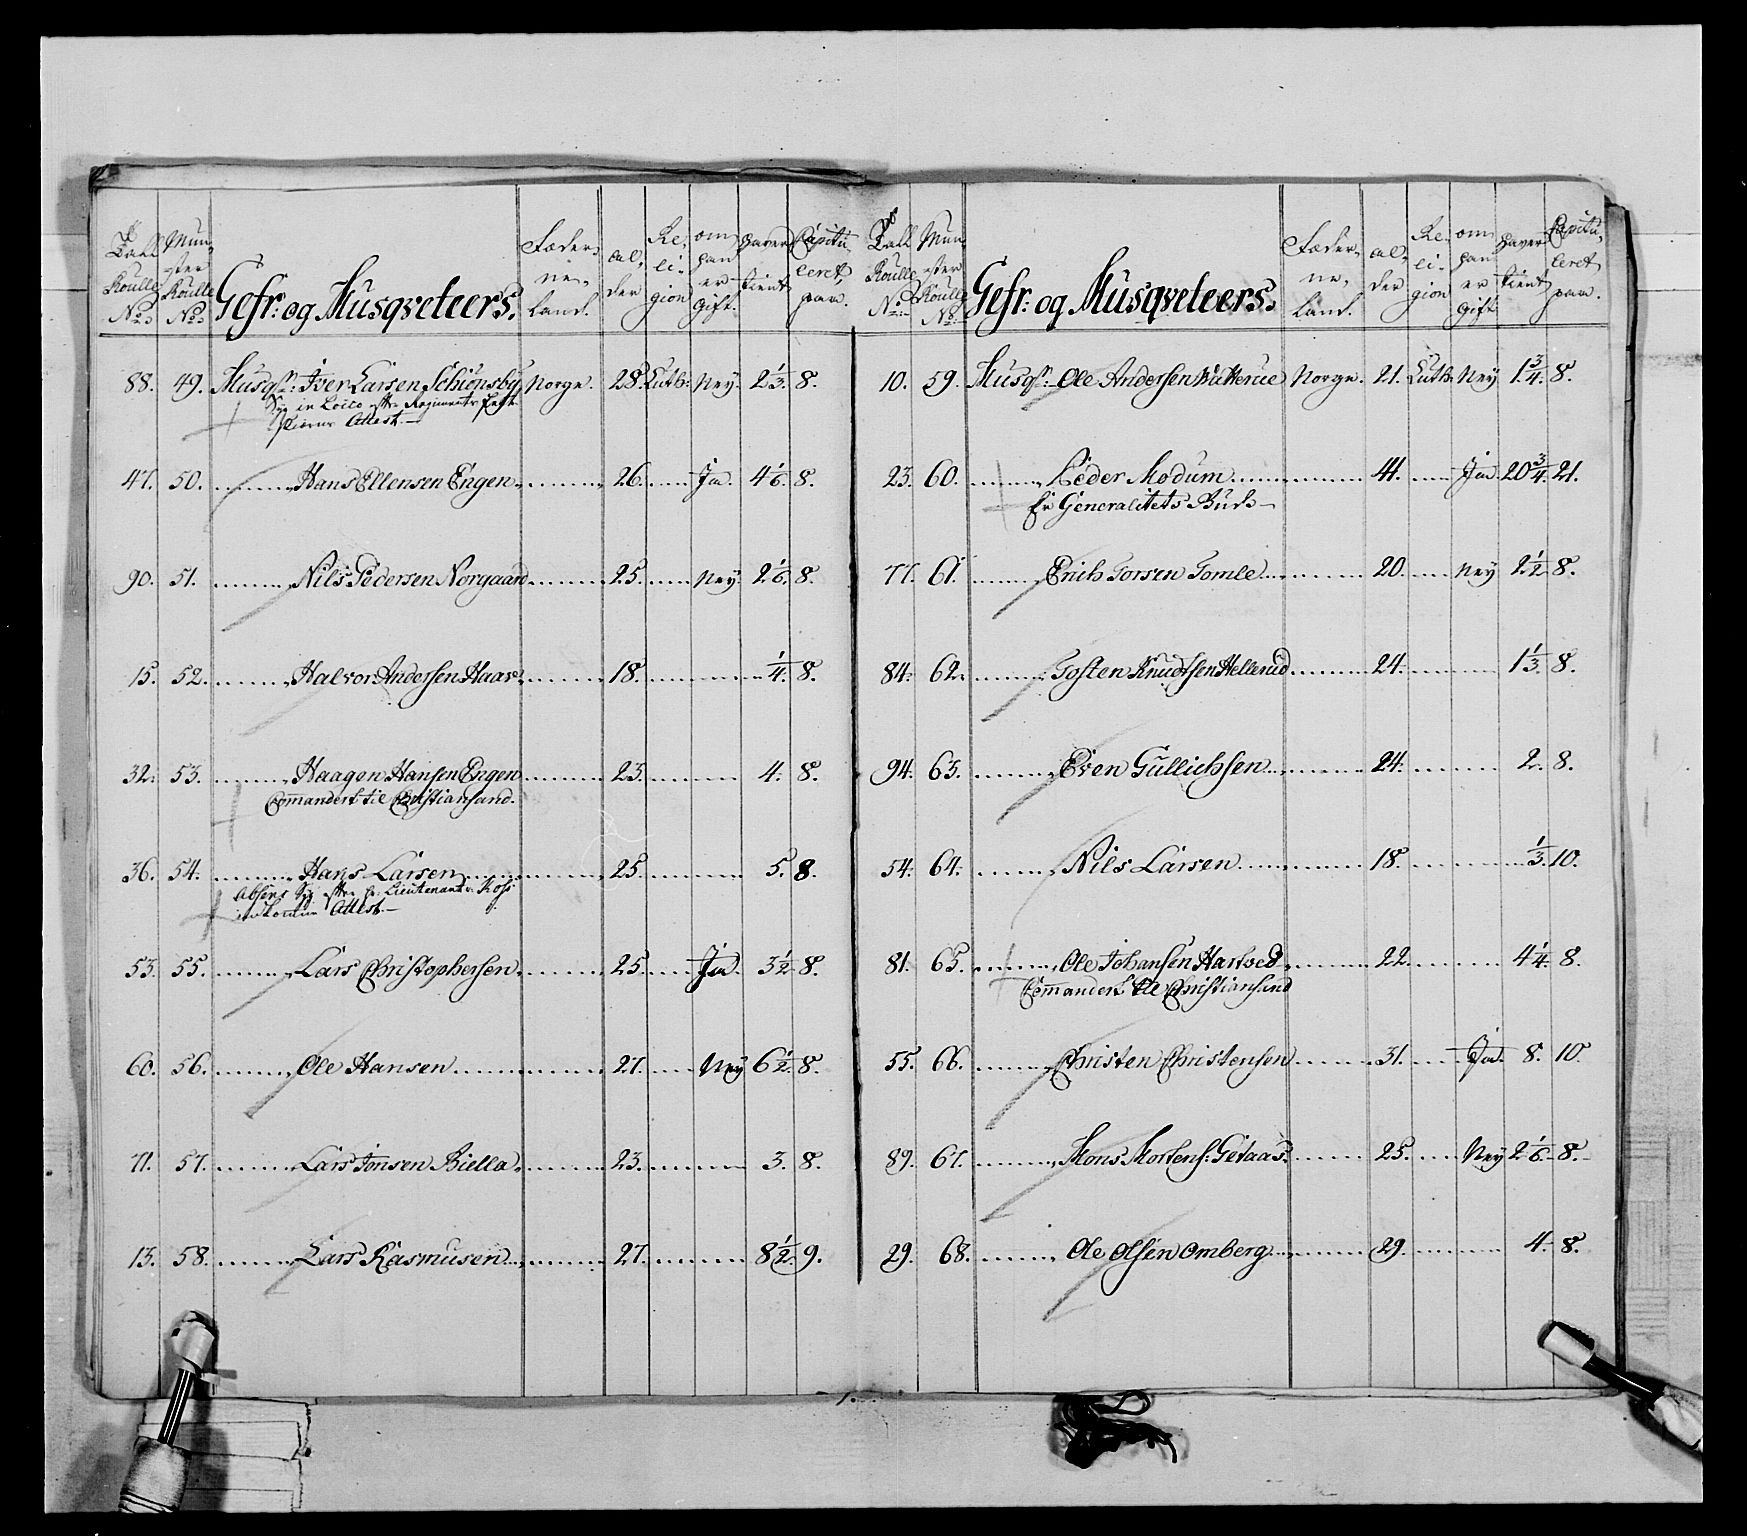 Tall Roulle No:
Mun-ster Roulle No:
Gefr: og Musqveteers.
Fæder-ne-land.
al-der
Re-li-gion
om han er gift.
haver tient
Capitu-leret paa.
88. 49. Musqr: Iver Larsen Schiönsby Norge. 28. Luth: Ney. 2 1/3. 8.
Syg in Loco efter Regiments
Attest.
47. 50. Hans Ellensen Engen 26. Ja. 4 1/6. 8.
90. 51. Nils Pedersen Norgaard 25. Ney. 2 1/6. 8.
15. 52. Halvor Andersen Haare 18. 1/4. 8.
32. 53. Haagen Hansen Engen 23. 4. 8.
Commandert til Christiansand.
36. 54. Hans Larsen 25. 5. 8.
Absent Syg efter Hr: Lieutenant
Attest
53. 55. Lars Christophersen 25. Ja. 3 1/2. 8.
60. 56. Ole Hansen 27. Ney 6 1/2. 8.
71. 57. Lars Jonsen Biella 23. 3. 8.
13. 58. Lars Rasmusen 27. 8 1/2. 9.
Tall Roulle No:
Mun-ster Roulle No:
Gefr: og Musqveteers.
Fæder-ne-land.
al-der
Re-li-gion
om han er gift
haver tient
Capitu-leret paa.
10. 59. Musqr: Ole Andersen Norge. 21. Luth: Ney 1 3/4. 8.
23. 60. Peder Modum 41. Ja. 20 3/4. 21.
Er Generalitets Bud
77. 61. Erich Torsen Tomle 20. Ney 2 1/2. 8.
84. 62. Tosten Knudtsen Hellerud 24. 1 1/3. 8.
94. 63. Even Gullichsen 24. 2. 8.
54. 64. Nils Larsen 18. 1/3. 10.
81. 65. Ole Johansen 22. 4 1/4. 8.
Commandert til Christiansand
55. 66. Christen Christensen 31. Ja. 8. 10.
89. 67. Mons Mortens: Getaas 25. Ney 2 1/6. 8.
29. 68. Ole Olsen Omberg 29. 4. 8.